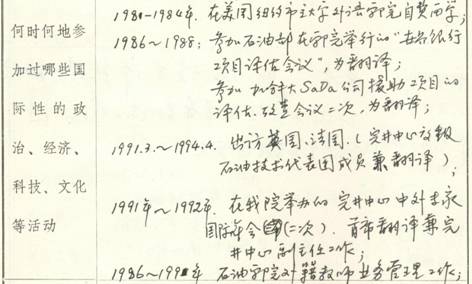 何时何地参
加过哪些国
际性的政
治、经济、
科技、文化
等活动
1980-1984年. 在美国纽约市立大学外语学院自费留学;
1986～1988: 参加石油部在我院举行的“世界银行
项目评估会议”, 为翻译;
参加加拿大SaDa公司援助项目的
评估、改造会议二次, 为翻译;
1991.3.～1994.4. 出访英国、法国. (完井中心
石油技术代表团成员兼翻译);
1991年～1992年. 在我院举办的完井中心中外专家
国际年会(二次). 首席翻译兼完
井中心副主任工作;
1986～199 年 石油学院外籍教师业务管理工作;